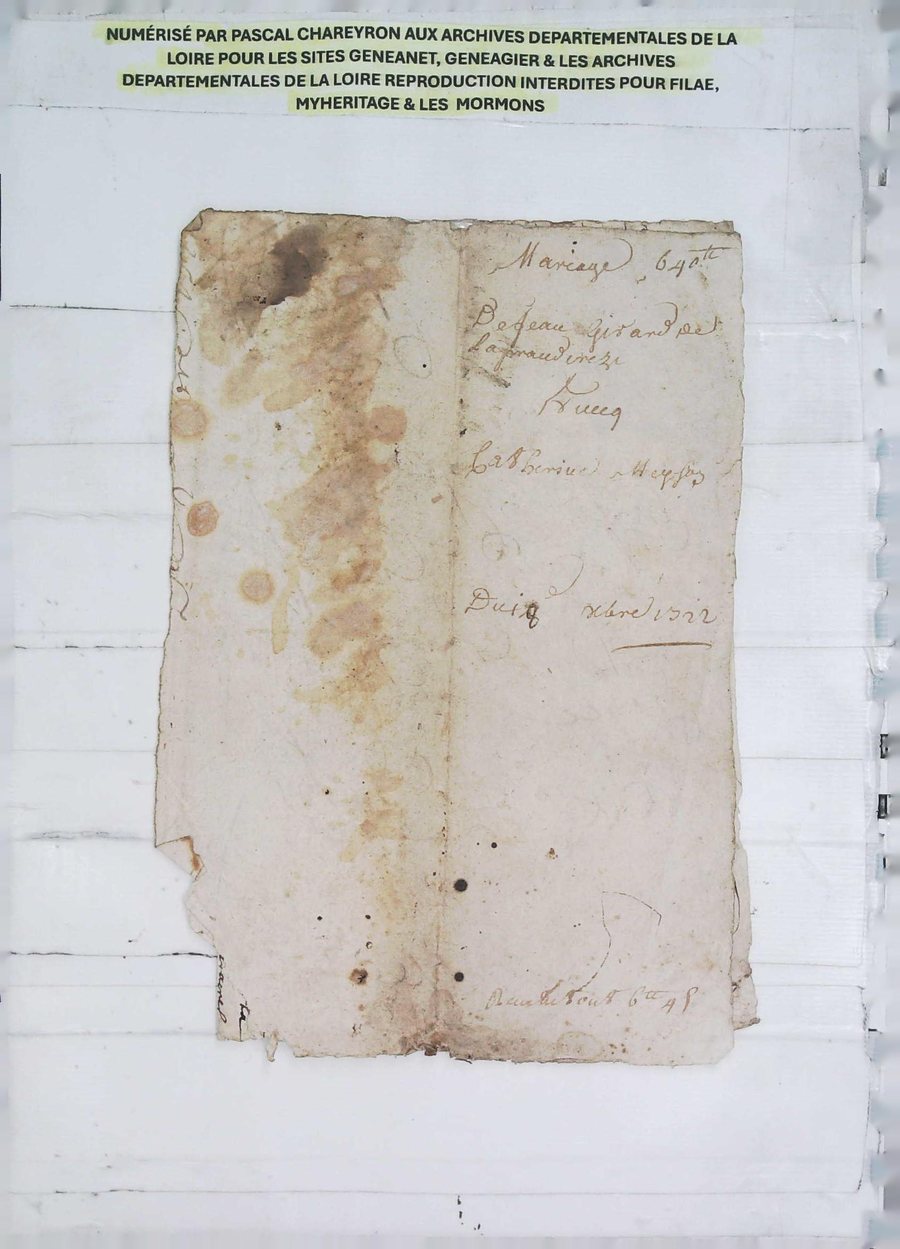 NUMÉRISÉ PAR PASCAL CHAREYRON AUX ARCHIVES DEPARTEMENTALES DE LA
LOIRE POUR LES SITES GENEANET, GENEAGIER & LES ARCHIVES
DEPARTEMENTALES DE LA LOIRE REPRODUCTION INTERDITES POUR FILAE,
MYHERITAGE & LES MORMONS
Mariage 640tt
De Jean Girard de
Avecq
Catherine
Du xbre 1722
tout 6tt 4s